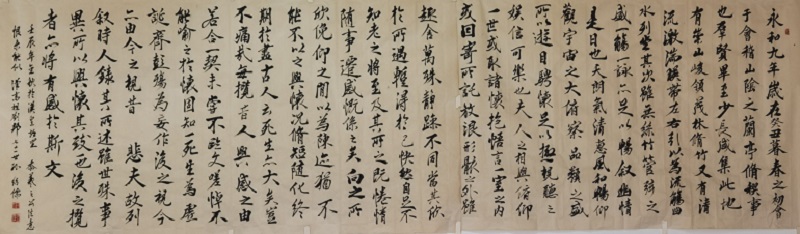 永和九年歲在癸丑暮春之初會
于會稽山陰之蘭亭脩稧事
也群賢畢至少長咸集此地
有崇山峻領茂林脩竹又有清
流激湍暎帶左右引以為流觴曲
水列坐其次雖無絲竹管絃之
盛一觴一詠亦足以暢敘幽情
是日也天朗氣清惠風和暢仰
觀宇宙之大俯察品類之盛
所以遊目騁懷足以極視聽之
娛信可樂也夫人之相與俯仰
一世或取諸懷抱悟言一室之內
或因寄所託放浪形骸之外雖
趣舍萬殊靜躁不同當其欣
於所遇蹔得於己快然自足不
知老之將至及其所之既惓情
隨事遷感慨係之矣向之所
欣俛仰之間以為陳迹猶不
能不以之興懷況脩短隨化終
期於盡古人云死生亦大矣豈
不痛哉每攬昔人興感之由
若合一契未嘗不臨文嗟悼不
能喻之於懷固知一死生為虛
誕齊彭殤為妄作後之視今
亦由今之視昔悲夫故列
敘時人錄其所述雖世殊事
異所以興懷其致一也後之攬
者亦將有感於斯文
壬辰年